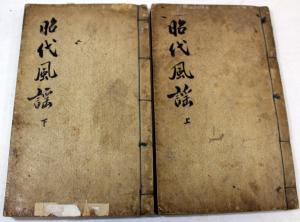 昭代風謠
上
昭代風謠
下